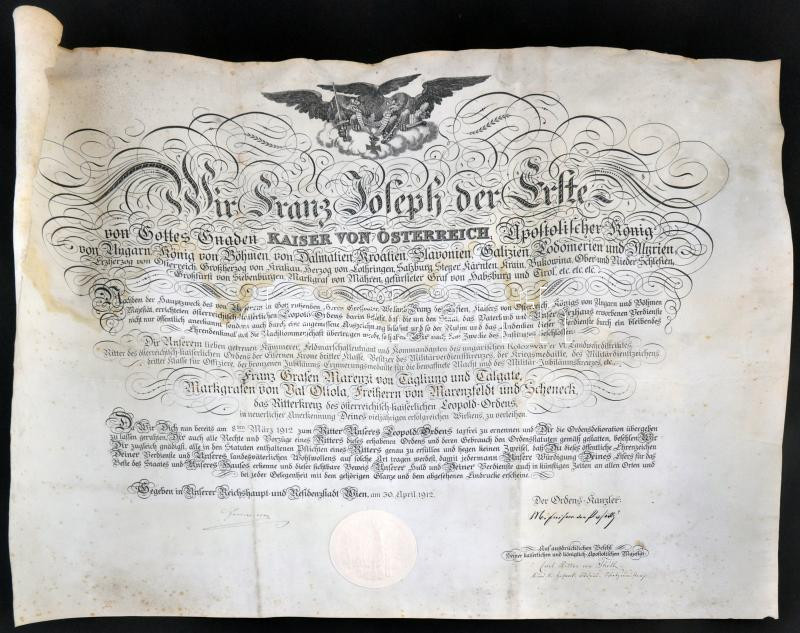 Wir Franz Joseph der Erste
von Gottes Gnaden KAISER VON ÖSTERREICH, Apostolischer König
von Ungarn, König von Böhmen, von Dalmatien, Kroatien, Slavonien, Galizien, Lodomerien und Illyrien,
Erzherzog von Österreich, Großherzog von Krakau, Herzog von Lothringen, Salzburg, Steyer, Kärnten, Krain, Bukowina, Ober und Nieder Schlesien,
Großfürst von Siebenbürgen, Markgraf von Mähren, gefürsteter Graf von Habsburg und Tirol, etc. etc. etc.
Nachdem der Hauptzweck des von Unserem in Gott ruhenden Herrn Großvater, Weiland Franz des Ersten, Kaisers von Österreich, Königs von Ungarn und Böhmen
Majestät, errichteten österreichisch-kaiserlichen Leopold-Ordens darin besteht, daß die um den Staat, das Vaterland und Unser Erzhaus erworbenen Verdienste
nicht nur öffentlich anerkannt, sondern auch durch eine angemessene Auszeichnung belohnt und so der Ruhm und das Andenken dieser Verdienste durch ein bleibendes
Ehrendenkmal auf die Nachkommenschaft übertragen werde, so haben Wir nach dem Zwecke des Institutes beschlossen:
Dir Unserem lieben getreuen Kämmerer, Feldmarschalleutnant und Kommandanten des ungarischen Kolozsvárer VI. Landwehrdistriktes,
Ritter des österreichisch-kaiserlichen Ordens der Eisernen Krone dritter Klasse, Besitzer des Militärverdienstkreuzes, der Kriegsmedaille, des Militärdienstzeichens
dritter Klasse für Offiziere, der bronzenen Jubiläums Erinnerungsmedaille für die bewaffnete Macht und des Militär-Jubiläumskreuzes, etc.
Franz Grafen Marenzi von Tagliuno und Talgate,
Markgrafen von Val Oliola, Freiherrn von Marenzfeldt und Scheneck,
das Ritterkreuz des österreichisch-kaiserlichen Leopold-Ordens,
in neuerlicher Anerkennung Deines vieljährigen erfolgreichen Wirkens, zu verleihen.
Da Wir Dich nun bereits am 8ten März 1912 zum Ritter Unseres Leopold Ordens taxfrei zu ernennen und Dir die Ordensdekoration übergeben
zu lassen geruhten, Dir auch alle Rechte und Vorzüge eines Ritters dieses erhabenen Ordens und deren Gebrauch den Ordensstatuten gemäß gestatten, befehlen Wir
Dir zugleich gnädigst, alle in den Statuten enthaltenen Pflichten eines Ritters genau zu erfüllen und hegen keinen Zweifel, daß Du dieses öffentliche Ehrenzeichen
Deiner Verdienste und Unseres landesväterlichen Wohlwollens auf solche Art tragen werdest, damit jedermann Unsere Würdigung Deines Eifers für das
Beste des Staates und Unseres Hauses erkenne und dieser sichtbare Beweis Unserer Huld und Deiner Verdienste auch in künftigen Zeiten an allen Orten und
bei jeder Gelegenheit mit dem gehörigen Glanze und dem abgesehenen Eindrucke erscheine.
Gegeben in Unserer Reichshaupt- und Residenzstadt Wien, am 30. April 1912.
Der Ordens-Kanzler:
Auf ausdrücklichen Befehl
Seiner kaiserlichen und königlich-Apostolischen Majestät
Carl Ritter von